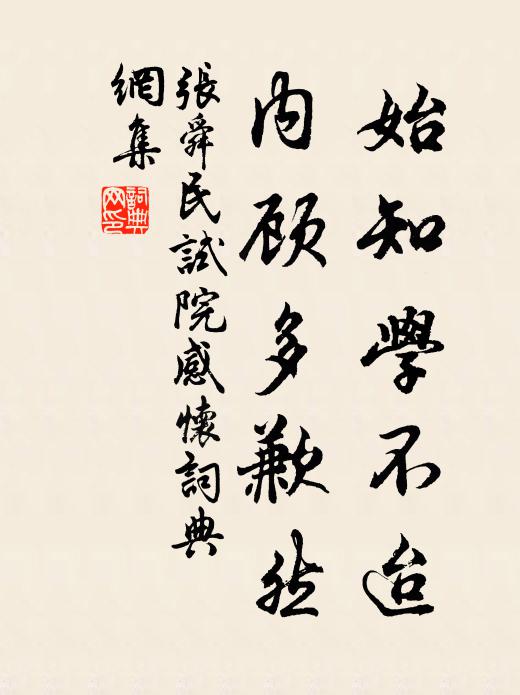 始知學不迨
內顾多歉然
張舜民試院感懷詞典
網集
詞典
网印